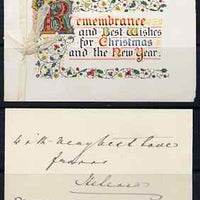 Remembrance
and Best Wishes
for Christmas
and the New Year.
with very best love
from